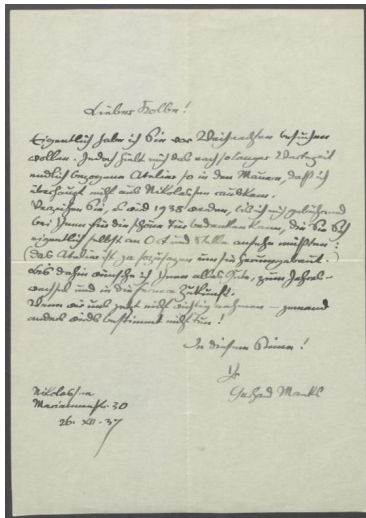 Lieber Kolbe!
Eigentlich habe ich Sie vor Weihnachten besuchen
wollen. Jedoch hielt mich das nach so langer Wartezeit
endlich bezogene Atelier so in den Mauern, daß ich
überhaupt nicht aus Nikolassee rauskam.
Verzeihen Sie, es wird 1938 werden, bis ich mich gebührend
bei Ihnen für die schöne bedanken kann, die Sie sich
eigentlich selbst an Ort und Stelle ansehn müßten:
(das Atelier ist ja sozusagen um sie herumgebaut.)
Bis dahin wünsche ich Ihnen alles Gute, zum Jahres-
wechsel und in die fernere Zukunft.
Wenn wir uns jetzt nicht wichtig nehmen – jemand
anders wird's bestimmt nicht tun!
In diesem Sinne!
Ihr
Gerhard Marcks
Nikolassee
26. XII. 37